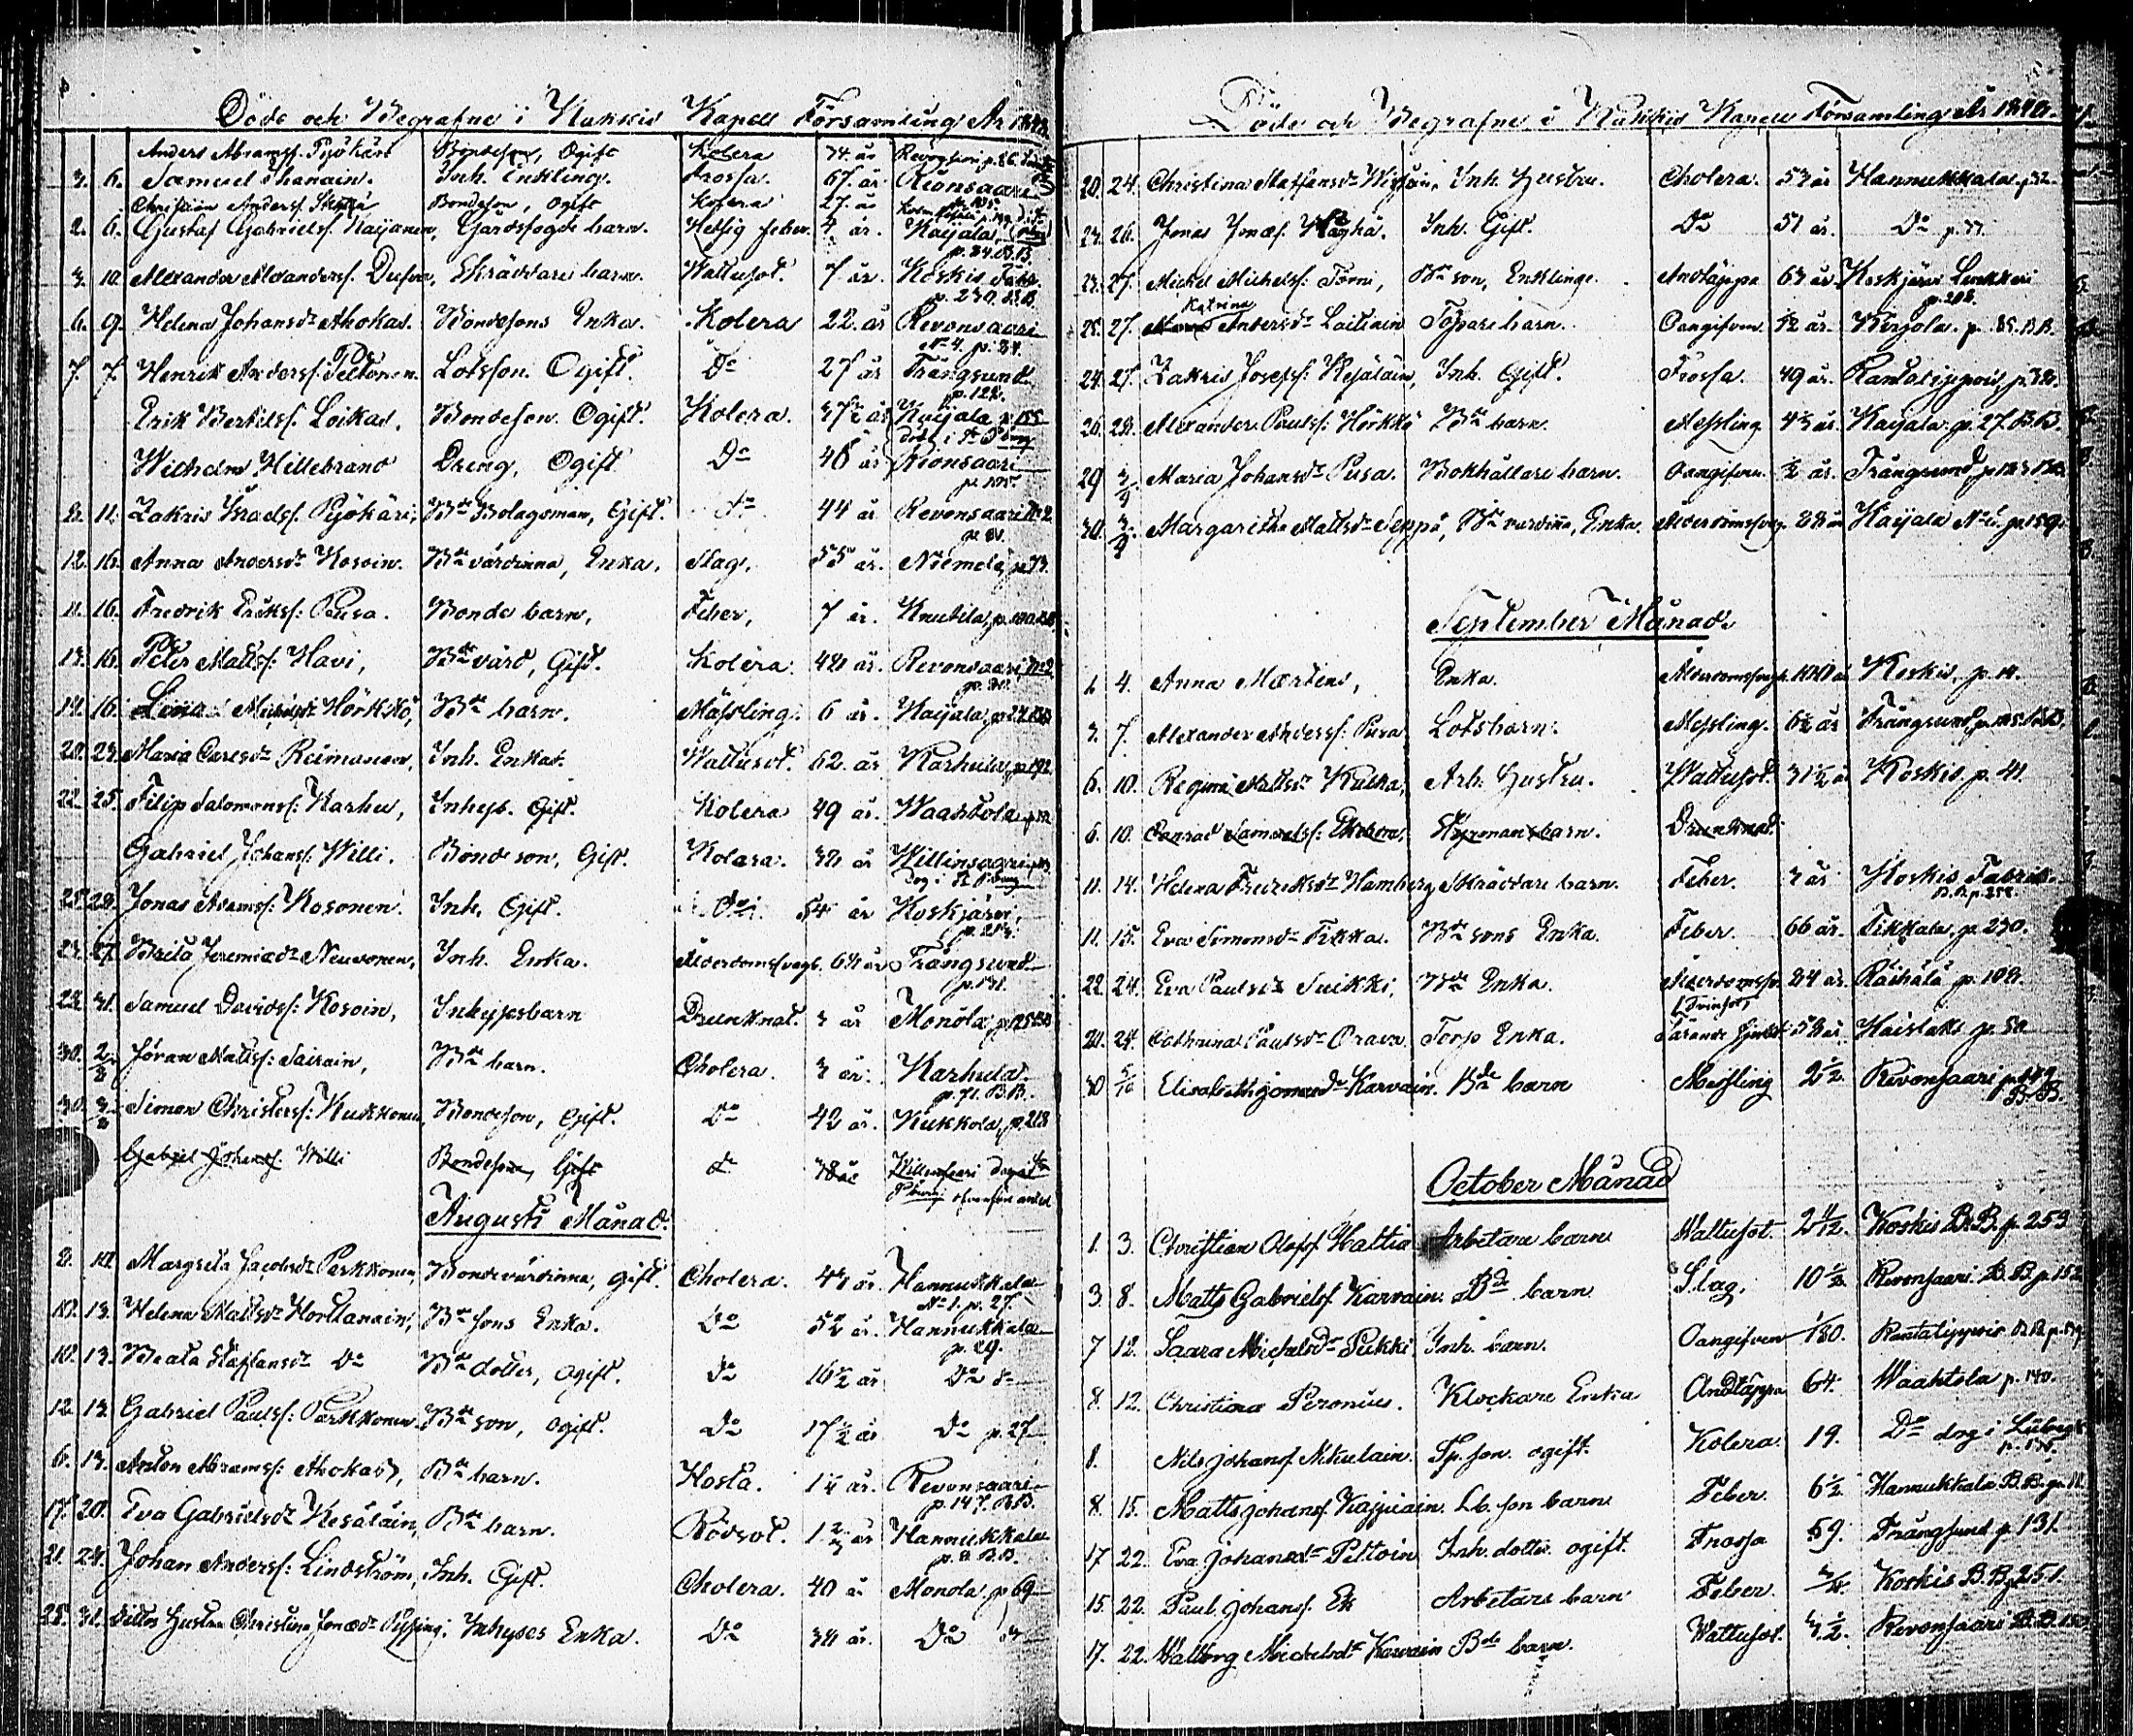 Döde och Begrafne i Kakkis Kapell Församling År
Anders Abramss. Pyökäri Bondeson, Ogift Kolera 34. år
3. 6. Samuel Ihanain. Inh. Enkling. Frossa. 67. år. Rionsaari
Christian Anderss. Bondeson, ogift Kolera 27. år
2. 6. Gustaf Gabrielss. Kaijanen, Gårdsfogde barn. Hetsig feber. 4 år. Kaijala,
p. 34. B.B.
3. 10. Alexander Alexanderss. Dufva, Skräddare barn. Wattusot. 7 år. Koskis Fabr.
p. 230. B.B.
6. 9. Helena Johansdr Ahokas. Bondesons Enka. Kolera 22. år Revonsaari
No 4. p. 34.
7. 7. Henrik Anderss. Peltonen. Lotsson. Ogift. Do 27 år Trångsund
p. 122.
Erik Bertilss. Loikas, Bondeson. Ogift. Kolera. 37½ år Kaijala p. 155
Wilhelm Hillebrand Dreng, Ogift Do 46 år Rionsaari
p. 105.
8. 11. Zakris Israelss. Pyökäri, Bde Bolagsman, Gift. do 44 år Revonsaari No 2
12. 16. Anna Andersdr Kosoin. Bde värdinna, Enka. Slag. 55 år. Niemelä, p. 73.
11. 16. Fredrik Erikss: Pusa. Bonde barn, Feber, 7 år. Knutila,
13. 16. Peter Mattss: Havi, Bde värd, Gift. Kolera. 48 år. Revonsaari, No 2
p. 30.
14. 16. Lina Michelsdr Hörkkö, Bde barn. Mässling: 6 år. Kaijala, p. 27. B.B.
20. 23. Maria Carlsdr Reimonen, Inh. Enka. Wattusot. 62. år Karhula, p. 192.
22. 25. Filip Salomonss: Karhu, Inhys. Gift. Kolera 49 år. Waahtola
Gabriel Johanss: Willi. Bonde son, Gift. Kolera. 38 år Willinsaari
Dog i St. P.burg
25. 28. Jonas Adamss: Kosonen. Inh. Gift. do 54 år Koskjärvi,
23. 27. Brita Jeremiædr Neuvonen, Inh. Enka. Ålderdomssvagh. 68 år Trångsund
p. 131.
28. 31. Samuel Davidss: Kosoin, Inhysesbarn Drunknat. 3 år Monola,
30. 2/8 Jöran Mattss: Sairain, Bde barn. Cholera. 3 år. Karhula
p. 71. B.B.
30. 3/8 Simon Christerss: Kukkonen, Bondeson, Gift. Do 42 år. Kukkola, p. 218
Gabriel Johanss: Willi Bondeson, Gift do 38 år Willinsaari dog i St.
P.burg
Augusti Månad.
8. 10. Margreta Jacobsdr Parkkonen Bondevärdinna, gift. Cholera. 43 år. Hannukkala
No 1. p. 27.
10. 13. Helena Mattsdr Horttanain, Bde sons Enka. Do 52 år. Hannukkala
p. 29.
10. 13. Beata Staffansdr Do Bde dotter, ogift. do 16½ år Do do
12. 13. Gabriel Paulss: Parkkonen Bde son, ogift. Do 17½ år Do p. 27
6. 13. Anton Abramss: Ahokas, Bde barn. Hosta. 1¼ år. Revonsaari
p. 147. B.B.
17. 20. Eva Gabrielsdr Kesäläin, Bde barn. Rödsot. 1⅔ år Hannukkala
p. 8. B.B.
21. 24. Johan Anderss: Lindström, Inh. Gift. Cholera. 40 år Monola, p. 69
28. 31. Dittos Hustru Christina Jonædr Inhyses Enka. Do 38 år. Do do
Döde och Begrafne i Kakkis Kapell Församling År 1848.
20. 24. Christina Staffansdr Inh. Hustru. Cholera. 53 år Hannukkala p. 32.
24. 26. Jonas Jonæs. Inh. Gift. Do 51 år. Do p. 33
23. 27. Michel Michelss: Törni, Bde son, Enkling. Andtäppa 63 år. Koskjärvi
p. 208.
Katrina
25. 27. Andersdr Laitiain Torpare barn. Oangifven. ½ år. Kirjola. p. 85. B.B.
24. 27. Zakris Josefss: Kesäläin, Inh. Gift. Frossa. 49 år. Rantalippois, p. 38.
26. 28. Alexander Paulss: Hörkkö Bde barn. Messling 4⅓ år. Kaijala p. 27. B.B.
29 3/9. Maria Johansdr Pusa. Bokhållare barn. Oangifven. ½ år. Trångsund p. 123 B.B.
30. 3/9 Margaretha Mattsdr Seppä, Bde värdinna, Enka. Ålderdomssvag. 88 år Kaijala No 6. p. 159.
September Månad.
1. 4. Anna Mårtens, Enka. Ålderdomssvagh. 100 år Koskis, p. 14.
3. 7. Alexander Anderss: Pusa Lotsbarn. Messling. 6½ år Trångsund, p. 125. B.B.
6. 10. Regina Mattsdr Kulha, Arb. Hustru. Wattusot. 31½ år Koskis p. 41.
6. 10. Conrad Samuelss: Ekebom, Styrmans barn. Drunknad.
11. 14. Helena Fredriksdr Hamberg Skräddare barn. Feber. 3 år Koskis Fabrik.
11. 15. Eva Simonsdr Tikka. Bde sons Enka. Feber. 66 år. Tikkala, p. 230.
22 24. Eva Paulsdr Suikki, Bde Enka. Ålderdomssv. 84 år. Räihälä p. 108.
21. 24. Cathrina Paulsdr Orava. Torp Enka. 58 år. Haislaks p. 50
30 5/10 Elisabeth Karvain. Bde barn Messling 2½ Revonsaari p. 149
B.B.
October Månad
1. 3. Christian Olofss. Hattia Arbetare barn Wattusot. 2 4/12. Koskis B.B. p. 259
3. 8. Matts Gabrielss. Karvain. Bde barn Slag, 10½ Revonsaari. B.B. p. 152
7 12. Saara Michelsdr Pukki Inh. barn. Oangifven 1/30. Rantalippois B.B. p. 59
8. 12. Christina Peronius. Klockare Enka Andtäppa 64. Waahtola p. 140.
8. Nils Johanss. Mikulain. Tp. son. ogift. Kolera 19. Do dog i
8. 15. Matts Johanss. Kaijiain. Lb. son barn Feber. 6½ Hannukkala B.B. p. 11
17 22. Eva Johansdr Peltoin Inh. dotter. ogift. Frossa 59. Trångsund p. 131
15. 22. Paul Johanss. Ek Arbetare barn Feber. ¾. Koskis B.B. 251.
17. 22. Walborg Michelsdr Karvain Bde barn. Wattusot. 3½. Revonsaari B.B. 150